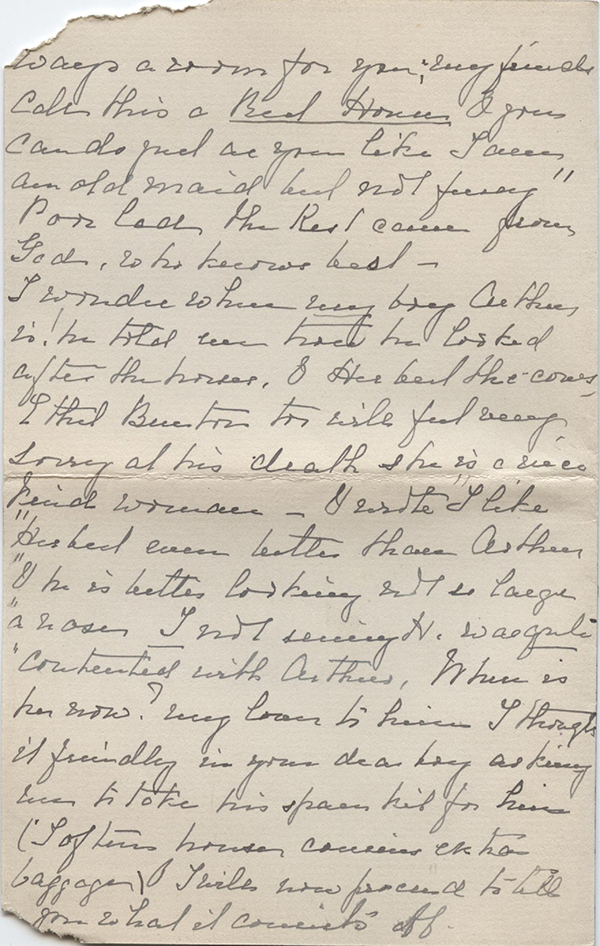 always a room for you, my friends
call this a Best House & you
can do just as you like I am
an old maid but not fussy"
Poor lad, the Rest came from
God, who knows best –
I wonder where my boy Arthur
is! he told me how he looked
after the horses, & Herbert the cows,
Ethel Burton too will feel very
sorry at his death she is a nice
kind woman – I wrote "I like
"Herbert even better than Arthur
"& he is better looking not so large
"a nose, I not seeing H. was quite
"contented with Arthur, Where is
he now? my love to him I thought
it friendly in your dear boy asking
me to take his spare kit for him
(I often house cousins extra
baggage) & I will now proceed to tell
you what it consists of.